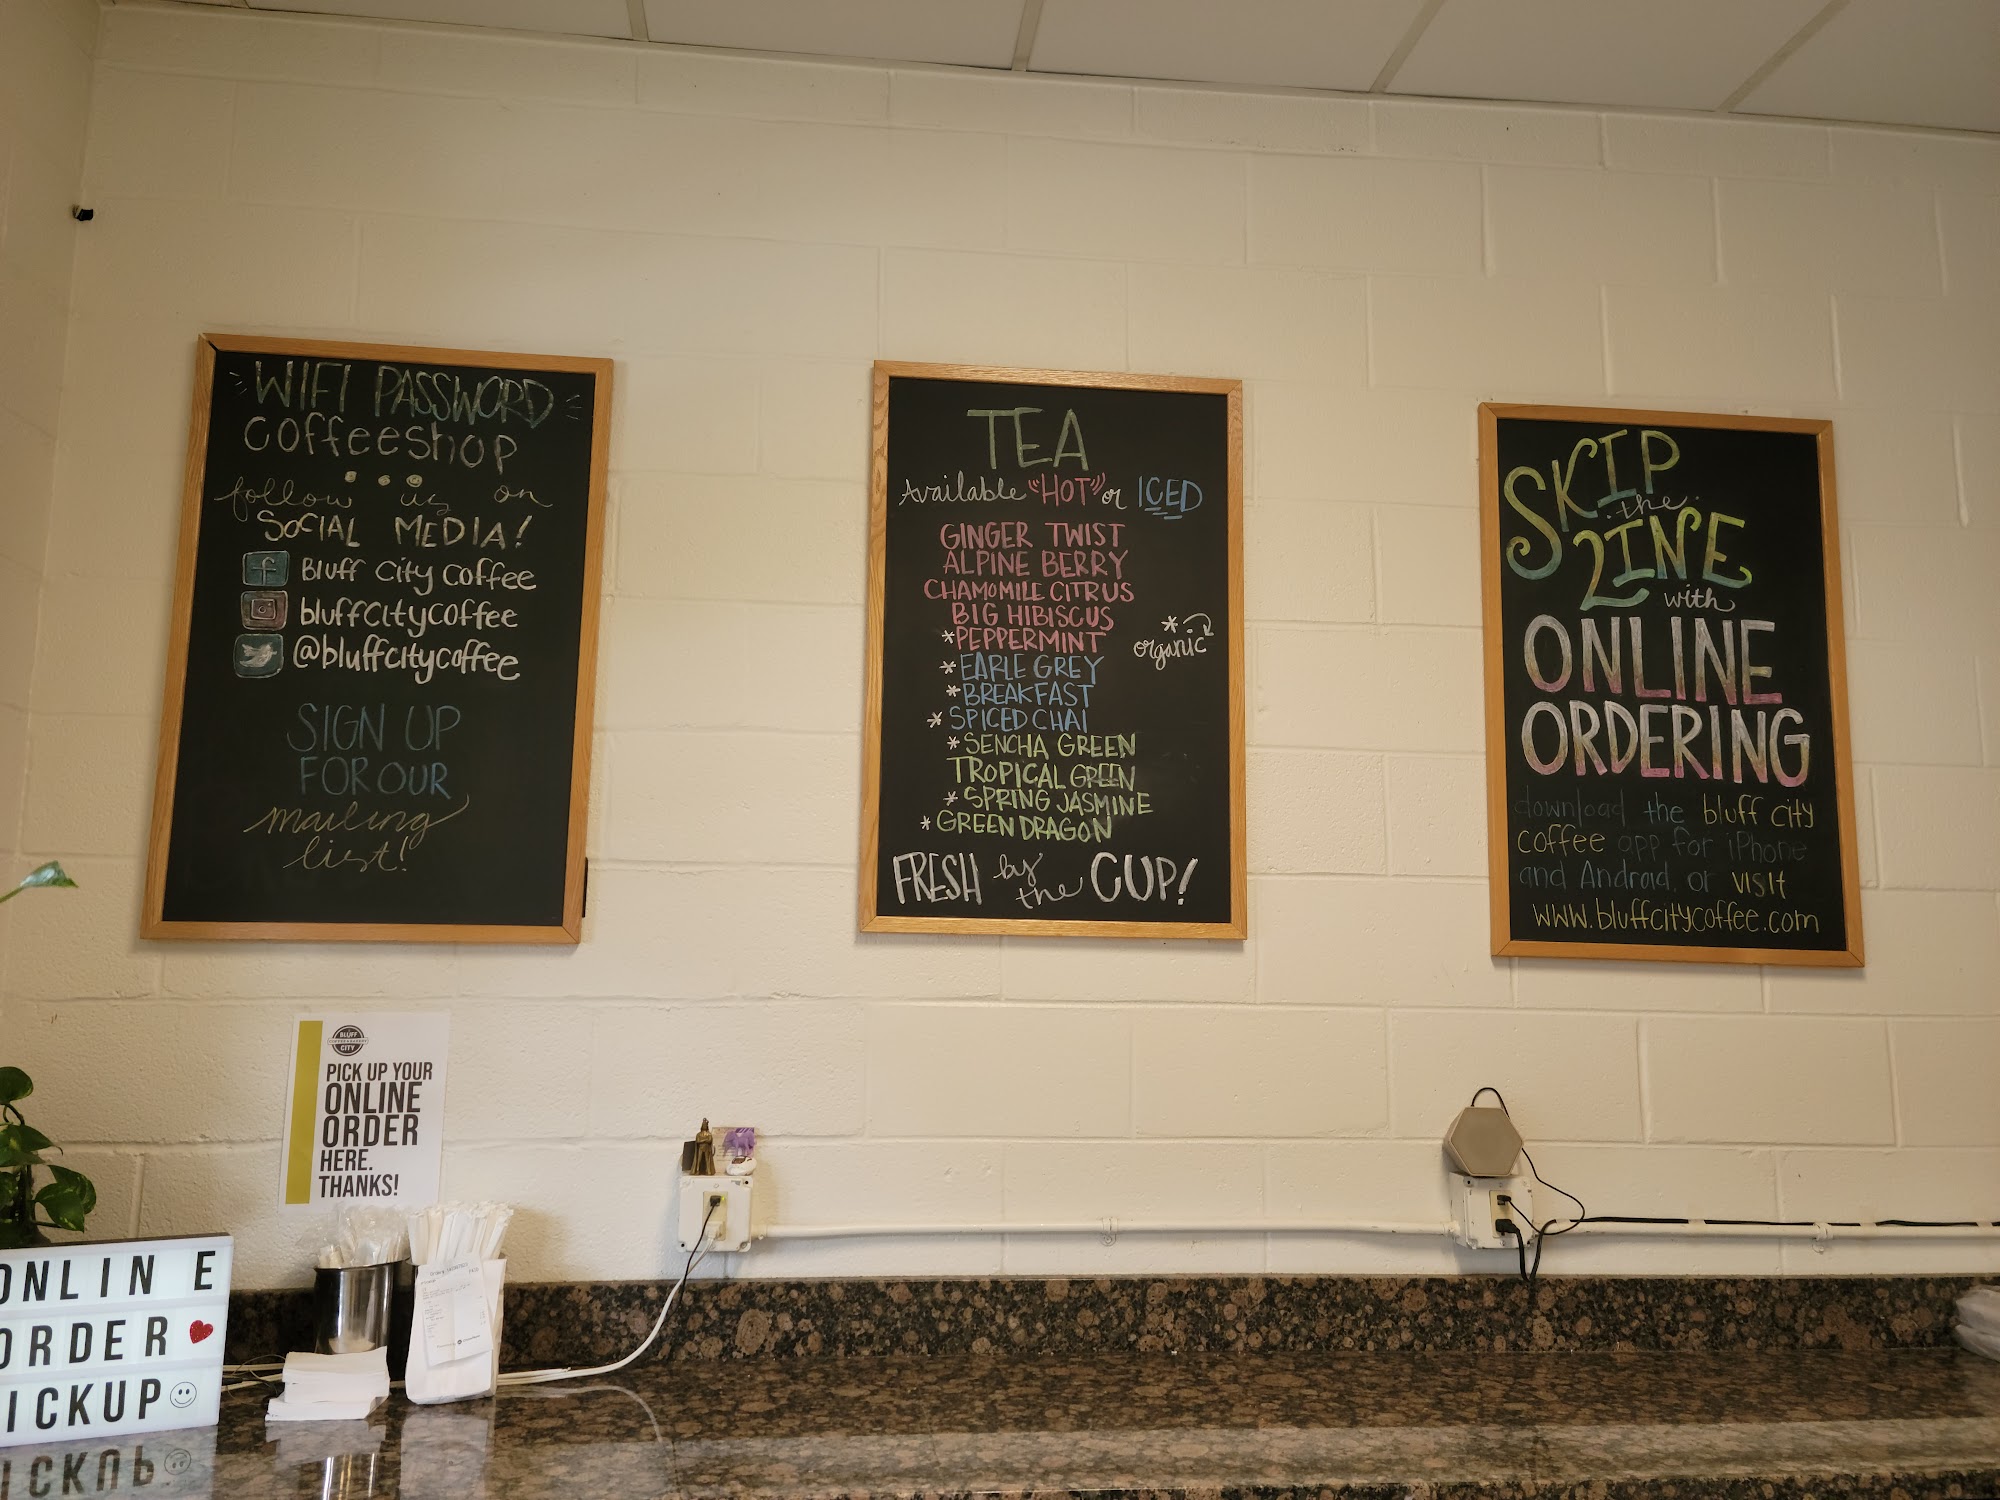 WIFI PASSWORD
coffeeshop
follow us on
SOCIAL MEDIA!
f Bluff City Coffee
bluffcitycoffee
@bluffcitycoffee
SIGN UP
FOR OUR
mailing
list!
TEA
Available "HOT" or ICED
GINGER TWIST
ALPINE BERRY
CHAMOMILE CITRUS
BIG HIBISCUS
*PEPPERMINT
* EARLE GREY
*BREAKFAST
* SPICED CHAI
* SENCHA GREEN
TROPICAL GREEN
* SPRING JASMINE
* GREEN DRAGON
*
organic
FRESH by the CUP!
SKIP
the
LINE
with
ONLINE
ORDERING
download the bluff city
coffee app for iPhone
and Android, or visit
www.bluffcitycoffee.com
BLUFF
CITY
PICK UP YOUR
ONLINE
ORDER
HERE.
THANKS!
ONLINE
ORDER
ICKUP